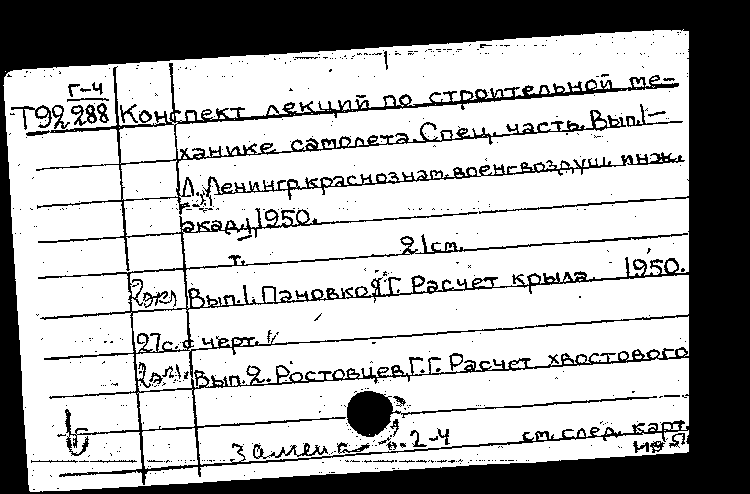 Г-4
Т92288 Конспект лекций по строительной ме-
ханике самолета. Спец. часть. Вып.1-
Л., Ленингр. краснознам. военгвоздуш. инж.
акад., 1950.
т. 21см.
2экз Вып.1. Пановко, Я.Г. Расчет крыла. 1950.
27с. с черт.
2экз. Вып.2. Ростовцев, Г.Г. Расчет хвостового
Замена 2-4 см. след. карт.